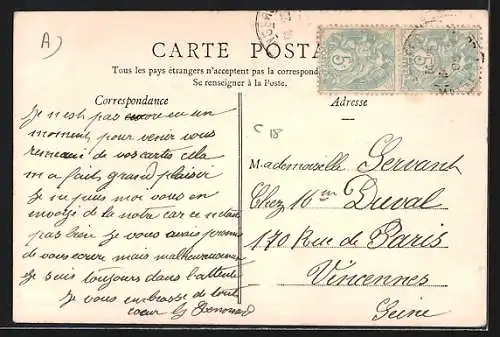 A)
CARTE POSTA
Tous les pays étrangers n'acceptent pas la correspond
Se renseigner à la Poste.
Correspondance
Adresse
Je n'est pas encore eu un
moment pour venir vous
remercier de vos cartes cela
m'a fait grand plaisir
Je
pas bien Je vous avais promis
de vous écrire mais malheureuse
Je suis toujours dans l'attente
Je vous embrasse de tout
coeur
C 18
Mademoiselle Servant
Chez Mm Duval
170 Rue de Paris
Vincennes
Seine
5
5